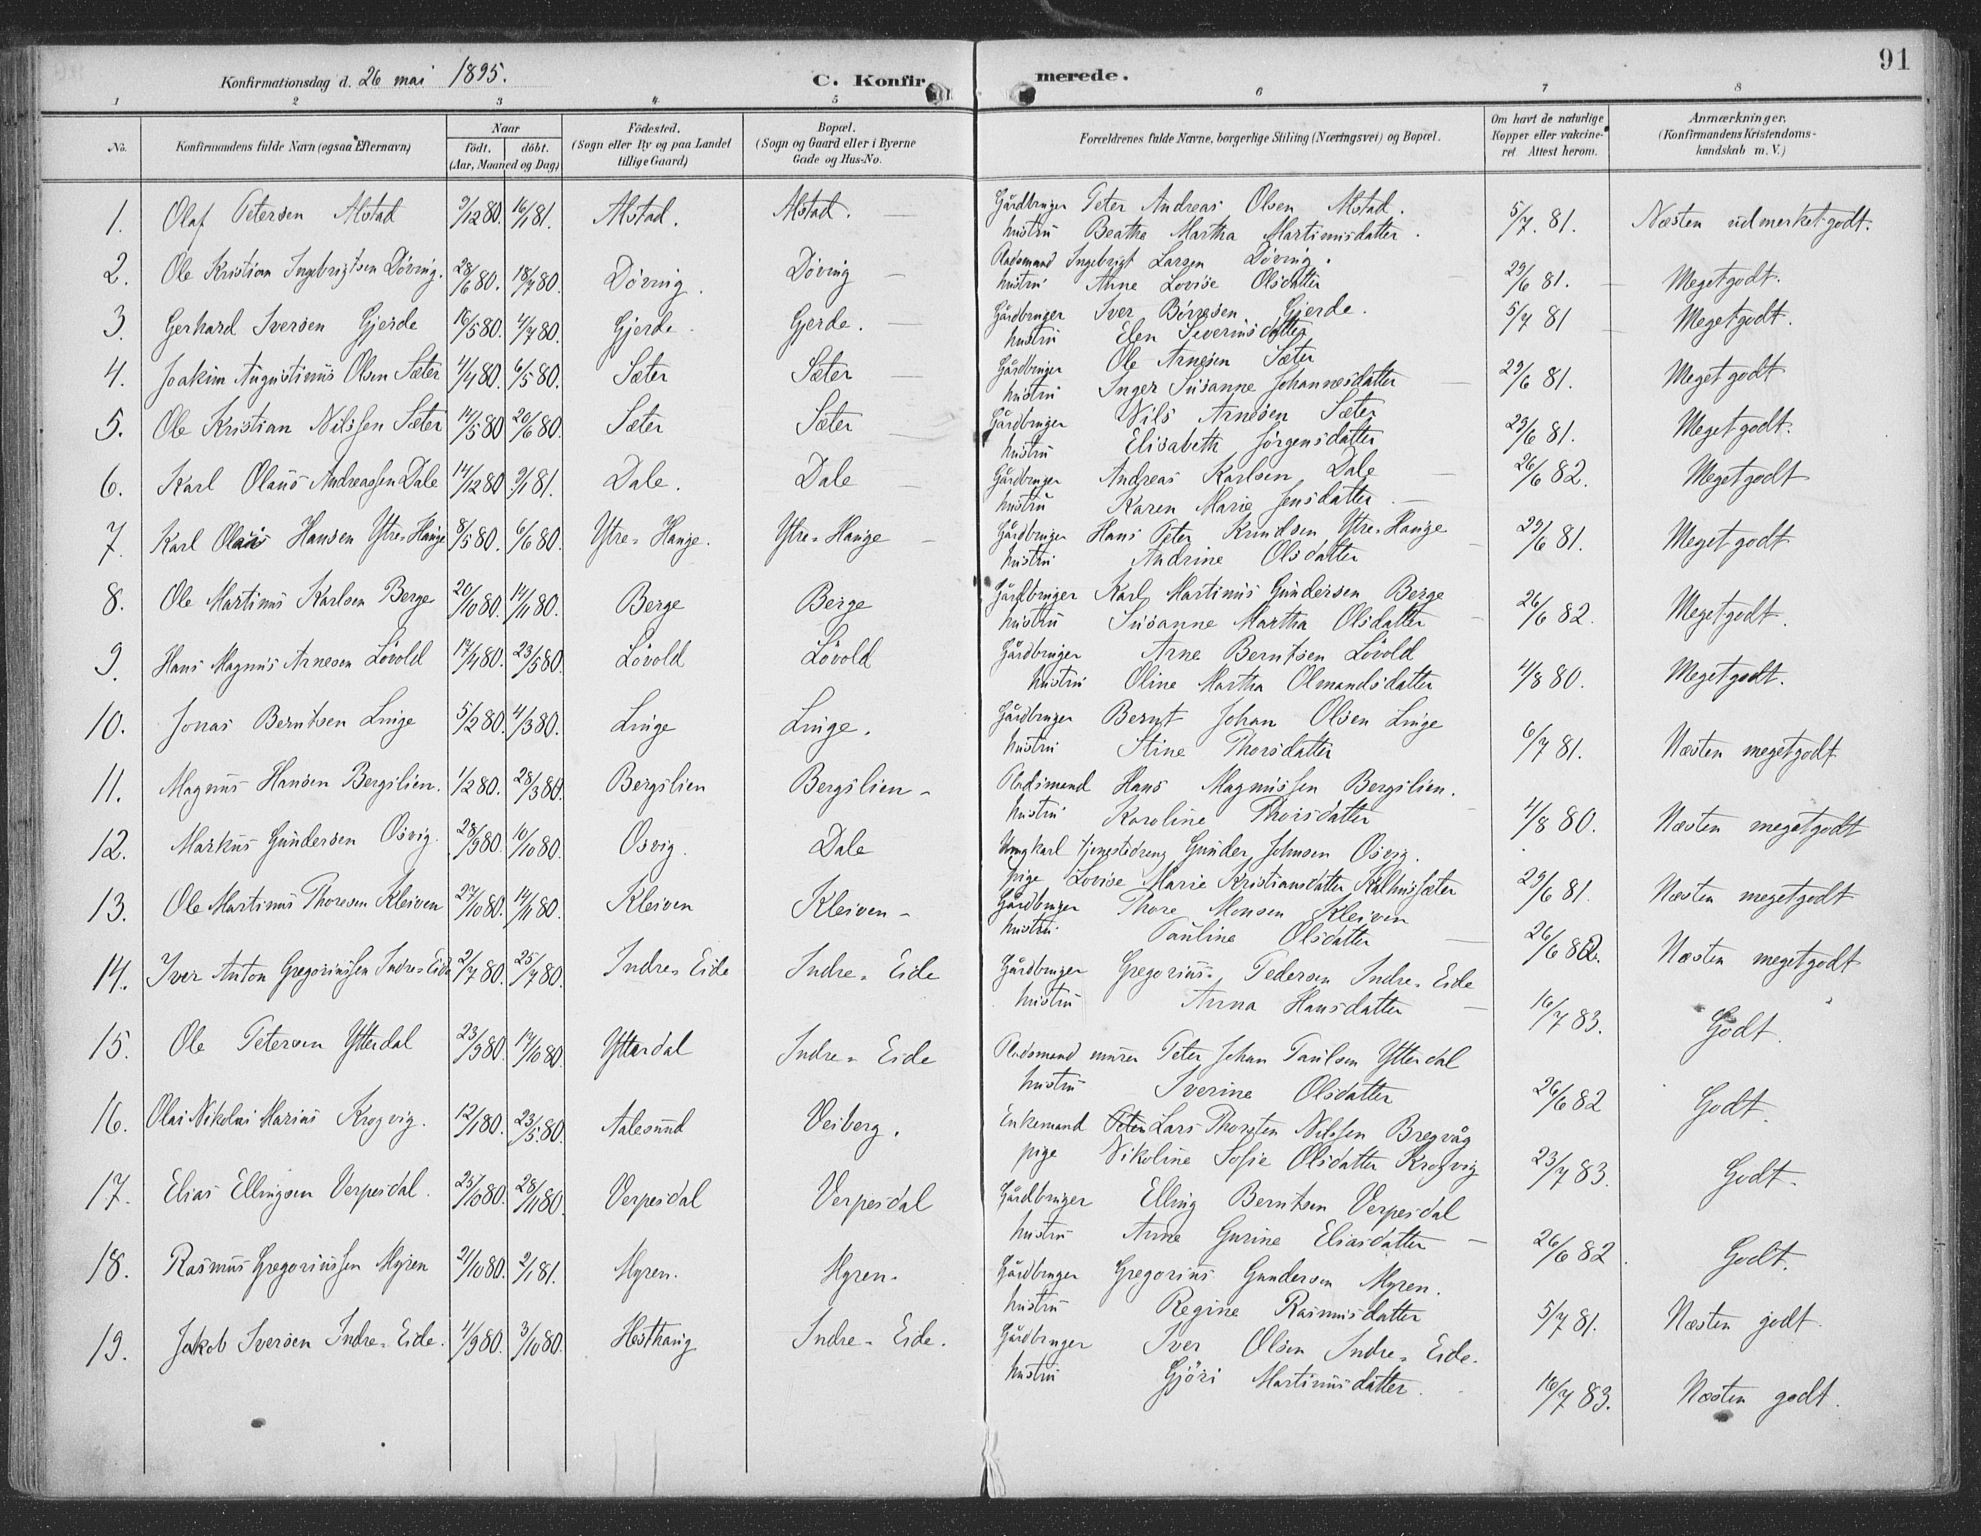 91
Konfirmationsdag d. 26 mai 1895. C. Konfirmerede.
1 2 3 4 5 6 7 8
No. Konfirmandens fulde Navn (ogsaa Efternavn) Naar Födt. döbt. (Aar, Maaned og Dag) Födested. (Sogn eller By og paa Landet tillige Gaard) Bopæl. (Sogn og Gaard eller i Byerne Gade og Hus-No. Forældrenes fulde Navne, borgerlige Stilling (Næringsvei) og Bopæl. Om havt de naturlige Kopper eller vakcineret Attest herom. Anmærkninger. (Konfirmandens Kristendomskundskab m. V.)
1. Olaf Petersen Alstad 9/12 80. 16/1 81. Alstad. Alstad. Gårdbruger Peter Andreas Olsen Alstad. 5/7. 81. Næsten udmerketgodt.
hustru Beathe Martha Martinusdatter.
2. Ole Kristian Ingebrigtsen Döving. 28/6 80. 18/7 80. Döving. Döving Rådsmand Ingebrigt Larsen Döving. 29/6 81. Megetgodt.
hustru Anne Lovise Olsdatter
3. Gerhard Iversen Gjerde 16/5 80. 4/7 80. Gjerde. Gjerde. Gårdbruger Iver Börresen Gjerde. 5/7 81 Megetgodt.
hustru Elen Severinsdatter
4. Joakim Augustinus Olsen Sæter 4/4 80. 6/5 80. Sæter Sæter Gårdbruger Ole Arnesen Sæter 29/6 81. Megetgodt
hustru Inger Susanne Johannesdatter
5. Ole Kristian Nilssen Sæter 14/5 80 20/6 80. Sæter Sæter Gårdbruger Nils Arnesen Sæter 29/6 81. Megetgodt.
hustru Elisabeth Jörgensdatter
6. Karl Olaus Andreassen Dale 14/12 80 9/1 81. Dale. Dale Gårdbruger Andreas Karlsen Dale 26/6 82. Megetgodt
hustru Karen Marie Jensdatter.
7. Karl Olaus Hansen Ytre-Hauge 8/5 80. 6/6 80. Ytre-Hauge. Ytre-Hauge Gårdbruger Hans Peter Knudsen Ytre-Hauge 29/6 81. Megetgodt
hustru Andrine Olsdatter
8. Ole Martinus Karlsen Berge 20/10 80. 14/11 80. Berge Berge Gårdbruger Karl Martinus Gundersen Berge 26/6 82. Megetgodt.
hustru Susanne Martha Olsdatter
9. Hans Magnus Arnesen Lövold 17/4 80. 23/5 80. Lövold Lövold Gårdbruger Arne Berntsen Lövold 4/8 80. Megetgodt.
hustru Oline Martha Olmandsdatter
10. Jonas Berntsen Linge 5/2 80. 4/3 80. Linge Linge. Gårdbruger Bernt Johan Olsen Linge 6/7 81. Næsten megetgodt
hustru Stine Thorsdatter
11. Magnus Hansen Bergslien. 1/2 80. 28/3 80. Bergslien Bergslien Rådsmand Hans Magnussen Bergslien. 4/8 80. Næsten megetgodt
hustru Karoline Thorsdatter
12. Markus Gundersen Osvig. 28/9 80. 10/10 80. Osvig. Dale Ungkarl Tjenestdreng Gunder Johnsen Osvig. 29/6 81. Næsten megetgodt
pige Lovise Marie Kristiansdatter Kalhussæter
13. Ole Martinus Thoresen Kleiven 27/10 80. 14/11 80. Kleiven Kleiven Gårdbruger Thore Monsen Kleiven 26/6 82. Næsten megetgodt
hustru Pauline Olsdatter
14. Iver Anton Gregoriussen Indre-Eide 2/7 80. 25/7 80. Indre-Eide Indre-Eide Gårdbruger Gregorius Pedersen Indre-Eide 16/7 83. Godt.
hustru Anna Hansdatter
15. Ole Petersen Ytterdal 23/9 80. 17/10 80. Ytterdal Indre-Eide Rådsmand murer Peter Johan Paulsen Ytterdal 26/6 82 Godt.
hustru Iverine Olsdatter
16. Olai Nikolai Marius Krogvig. 12/1 80. 23/5 80. Aalesund Veiberg. Enkemand Lars Thorsten Nilssen Bregvåg 23/7 83. Godt.
pige Nikoline Sofie Olsdatter Krogvig
17. Elias Ellingsen Verpesdal. 25/10 80. 28/11 80. Verpesdal Verpesdal Gårdbruger Elling Berntsen Verpesdal 26/6 82. Godt.
hustru Anne Gurine Eliasdatter
18. Rasmus Gregoriussen Myren 21/10 80. 2/1 81. Myren. Myren. Gårdbruger Gregorius Gundersen Myren. 5/7 81. Næsten godt.
hustru Regine Rasmusdatter
19. Jakob Iversen Indre-Eide. 4/9 80. 3/10 80. Hesthaug Indre-Eide. Gårdbruger Iver Olsen Indre-Eide. 16/7 83. Næsten godt.
hustru Gjöri Martinusdatter.